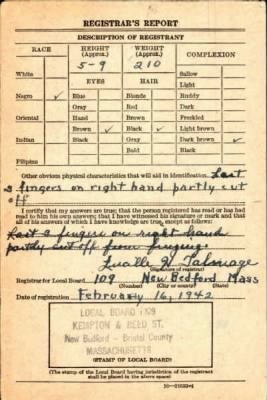 REGISTRAR'S REPORT
DESCRIPTION OF REGISTRANT
RACE HEIGHT (Approx.) WEIGHT (Approx.) COMPLEXION
5-9 210
White Sallow
EYES HAIR Light
Negro ✓ Blue Blonde Ruddy
Gray Red Dark
Oriental Hazel Brown Freckled
Brown ✓ Black ✓ Light brown
Indian Black Gray Dark brown ✓
Bald Black
Filipino
Other obvious physical characteristics that will aid in identification. Last
2 fingers on right hand partly cut
off
I certify that my answers are true; that the person registered has read or has had
read to him his own answers; that I have witnessed his signature or mark and that
all of his answers of which I have knowledge are true, except as follows:
Last 2 fingers on right hand
partly cut off from
Talmage
(Signature of registrar)
Registrar for Local Board 109 New Bedford Mass
(Number) (City or county) (State)
Date of registration February 16, 1942
LOCAL BOARD 109
KEMPTON & REED ST.
New Bedford - Bristol County
MASSACHUSETTS
(STAMP OF LOCAL BOARD)
(The stamp of the Local Board having jurisdiction of the registrant
shall be placed in the above space)